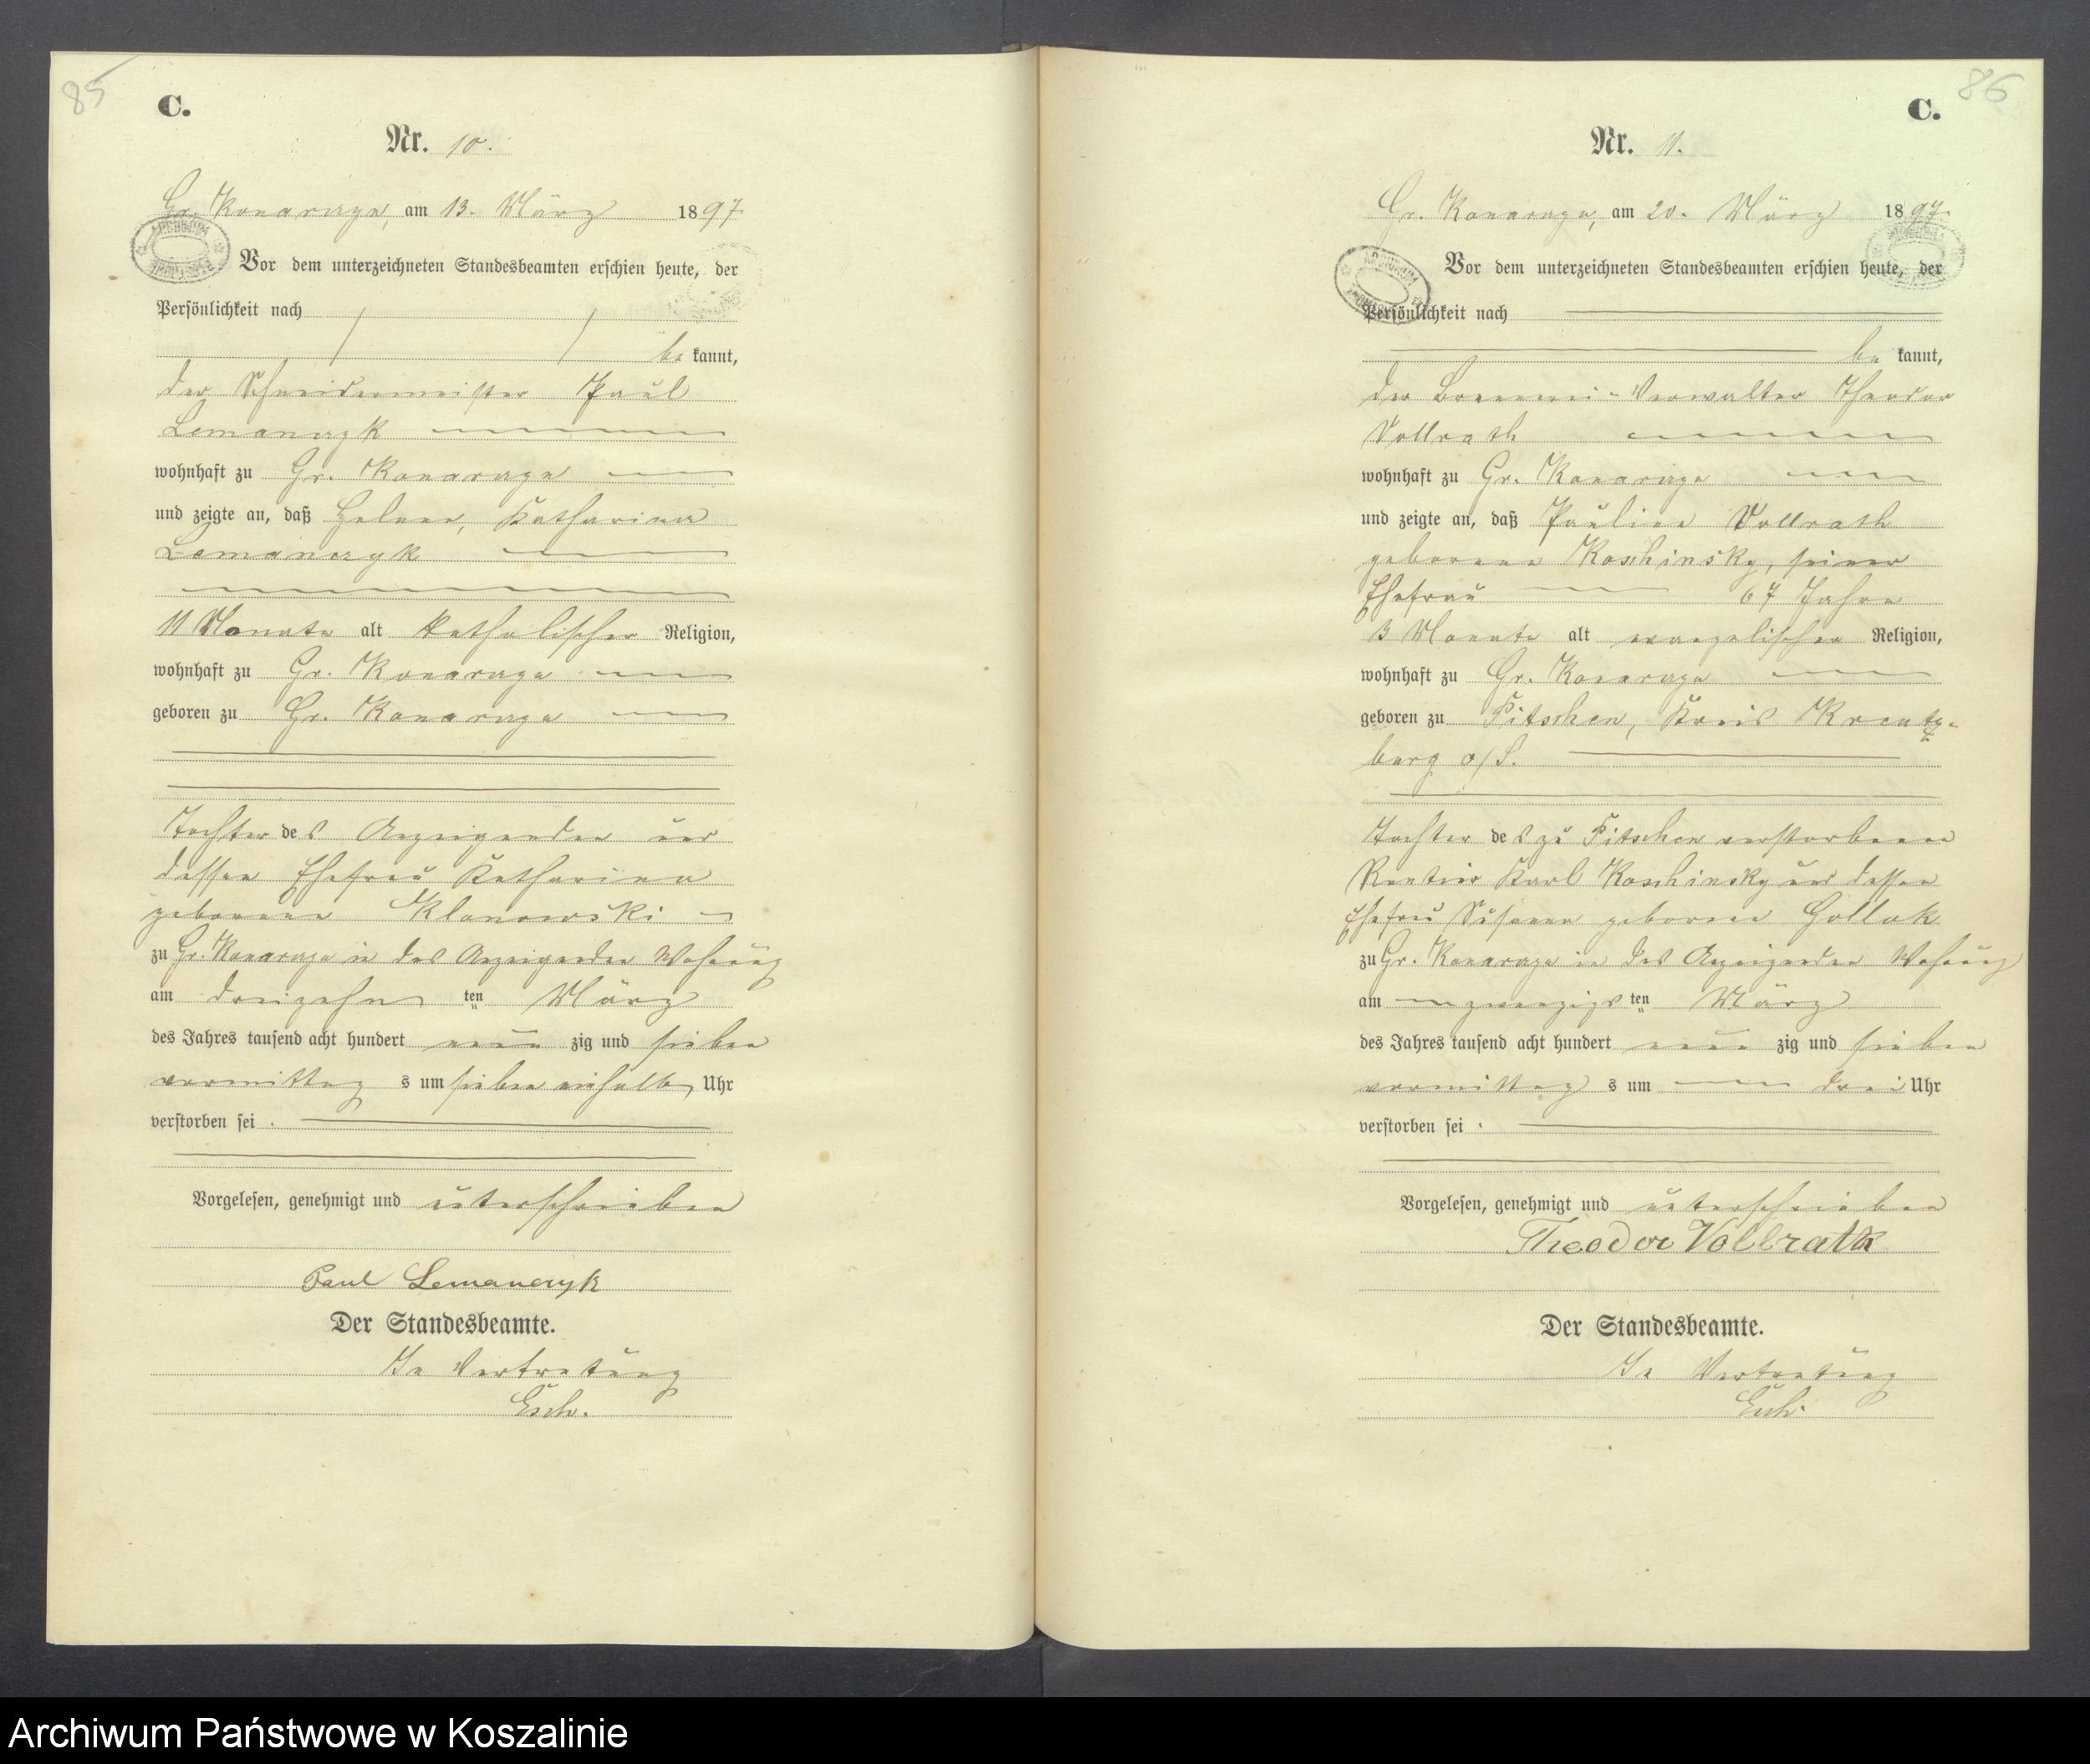 85
C.
Nr. 10.
Gr. Konarczyn, am 13. März 1897
Vor dem unterzeichneten Standesbeamten erschien heute, der
Persönlichkeit nach
be kannt,
der Schneidermeister Paul
Lemanczyk
wohnhaft zu Gr. Konarczyn
und zeigte an, daß Helene, Katharina
Lemanczyk
11 Monate alt katholischer Religion,
wohnhaft zu Gr. Konarczyn
geboren zu Gr. Konarczyn
Tochter des Anzeigenden und
dessen Ehefrau Katharina
geborene Klonowski
zu Gr. Konarczyn in des Anzeigenden Wohnung
am dreizehn ten März
des Jahres tausend acht hundert neun zig und sieben
vormittag s um sieben einhalb Uhr
verstorben sei.
Vorgelesen, genehmigt und unterschrieben
Paul Lemanczyk
Der Standesbeamte.
In Vertretung
Esch.
86
C.
Nr. 11.
Gr. Konarczyn, am 20. März 1897.
Vor dem unterzeichneten Standesbeamten erschien heute, der
Persönlichkeit nach
be kannt,
der Brennerei-Verwalter Theodor
Vollrath
wohnhaft zu Gr. Konarczyn
und zeigte an, daß Pauline Vollrath
geborene Koschinsky, seine
Ehefrau 67 Jahre
3 Monate alt evangelischer Religion,
wohnhaft zu Gr. Konarczyn
geboren zu Pitschen, Kreis Kreutz-
burg o/S.
Tochter des zu Pitschen verstorbenen
Rentier Karl Koschinsky und dessen
Ehefrau Susanna geborene Gollak
zu Gr. Konarczyn in des Anzeigenden Wohnung
am zwanzigs ten März
des Jahres tausend acht hundert neun zig und sieben
vormittag s um drei Uhr
verstorben sei.
Vorgelesen, genehmigt und unterschrieben
Theodor Vollrath
Der Standesbeamte.
In Vertretung
Esch.
Archiwum Państwowe w Koszalinie